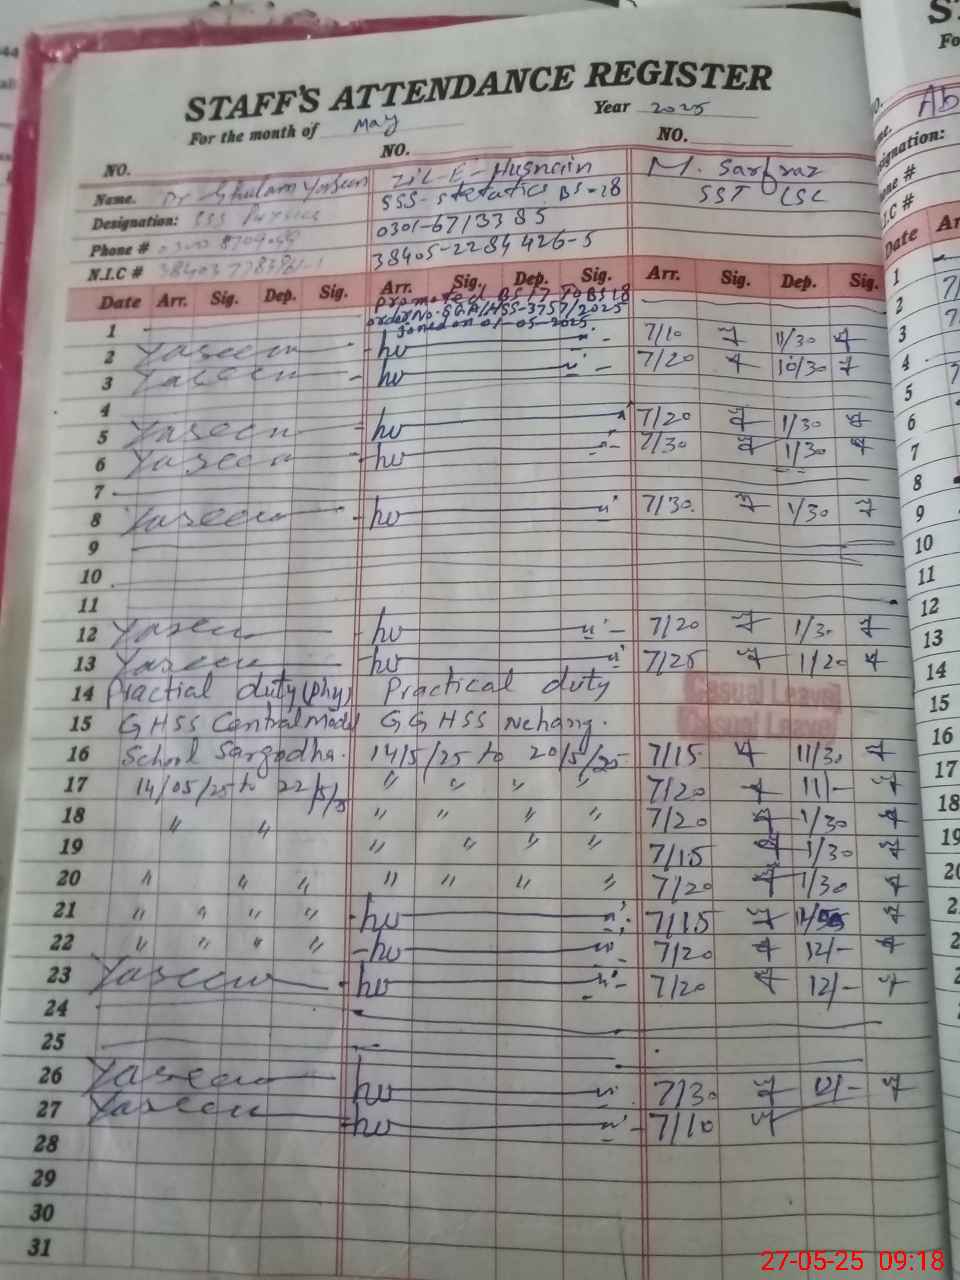 STAFF'S ATTENDANCE REGISTER
For the month of May Year 2025
NO. NO. NO.
Name. Dr Ghulam Yaseen Zil-E-Husnain M. Sarfraz
Designation: SSS Physics SSS-Statatics BS-18 SST (SC
Phone # 0301-6713385
N.I.C # 38405-2284426-5
Date Arr. Sig. Dep. Sig. Arr. Sig. Dep. Sig. Arr. Sig. Dep. Sig.
promoted BS 17 TO BS 18
order No. 3757/2025
1 Joined on 01-05-2025.
2 Yaseen 7/10 11/30
3 Yaseen 7/20 10/30
4
5 Yaseen 7/20 1/30
6 Yaseen 7/30 1/30
7
8 Yaseen 7/30 1/30
9
10
11
12 Yaseen 7/20 1/30
13 Yaseen 7/25 1/20
14 Practial duty (phy) Practical duty Casual Leave
15 GHSS Central Model GGHSS Nehang. Casual Leave
16 School Sargodha. 14/5/25 to 20/5/25 7/15 11/30
17 14/05/25 to 22/5/25 " " " " 7/20 11/-
18 " " " " " " 7/20 1/30
19 " " " " 7/15 1/30
20 " " " " " " " 7/20 1/30
21 " " " " 7/15
22 " " " " 7/20 12/-
23 Yaseen 7/20 12/-
24
25
26 Yaseen 7/30 12/-
27 Yaseen 7/10
28
29
30
31
27-05-25 09:18